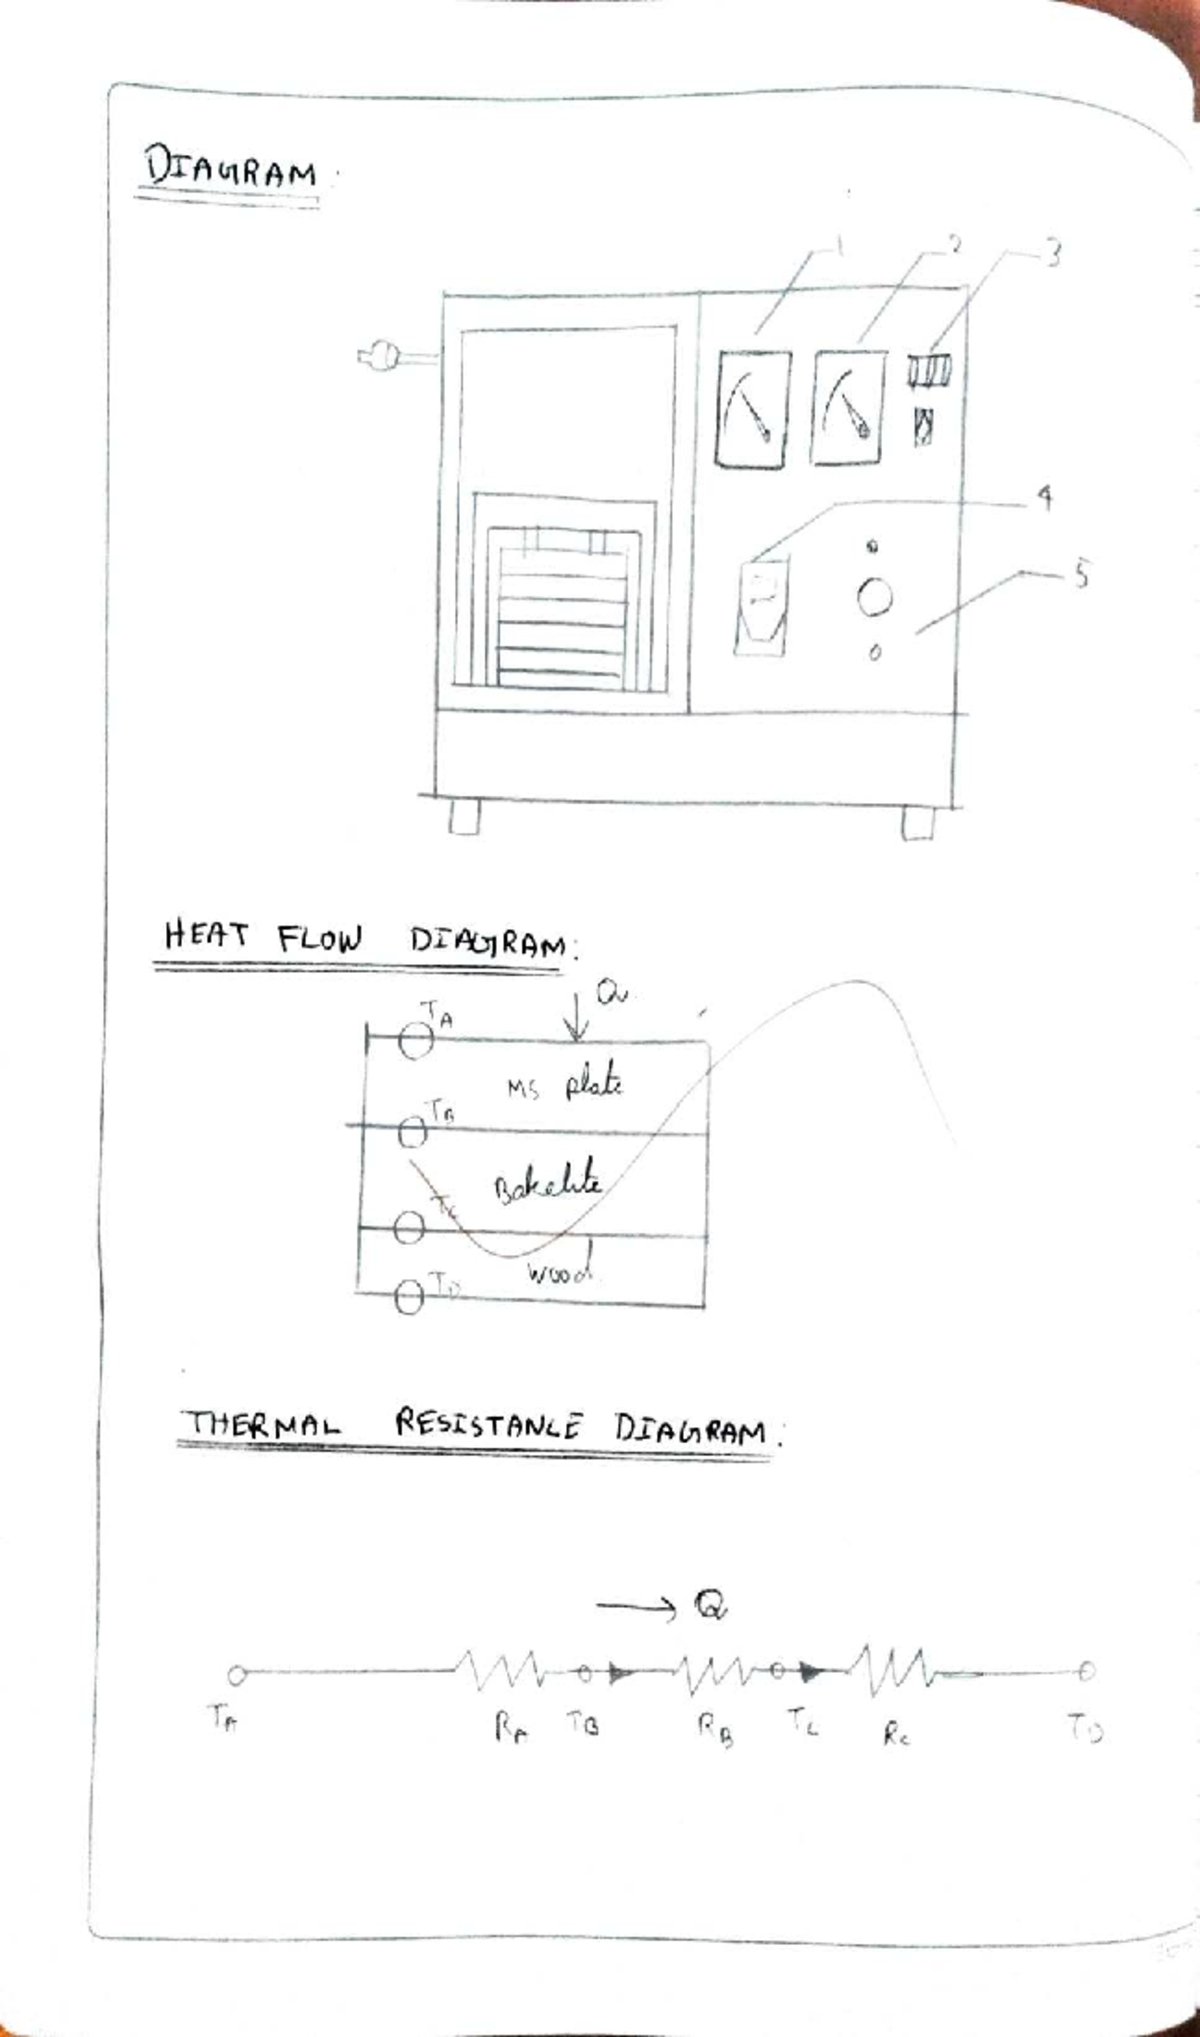 DIAGRAM:
1 2 3
4
5
HEAT FLOW DIAGRAM:
Q
TA
MS plate
TB
Bakelite
TC
wood
TD
THERMAL RESISTANCE DIAGRAM:
Q
TA RA TB RB TC RC TD